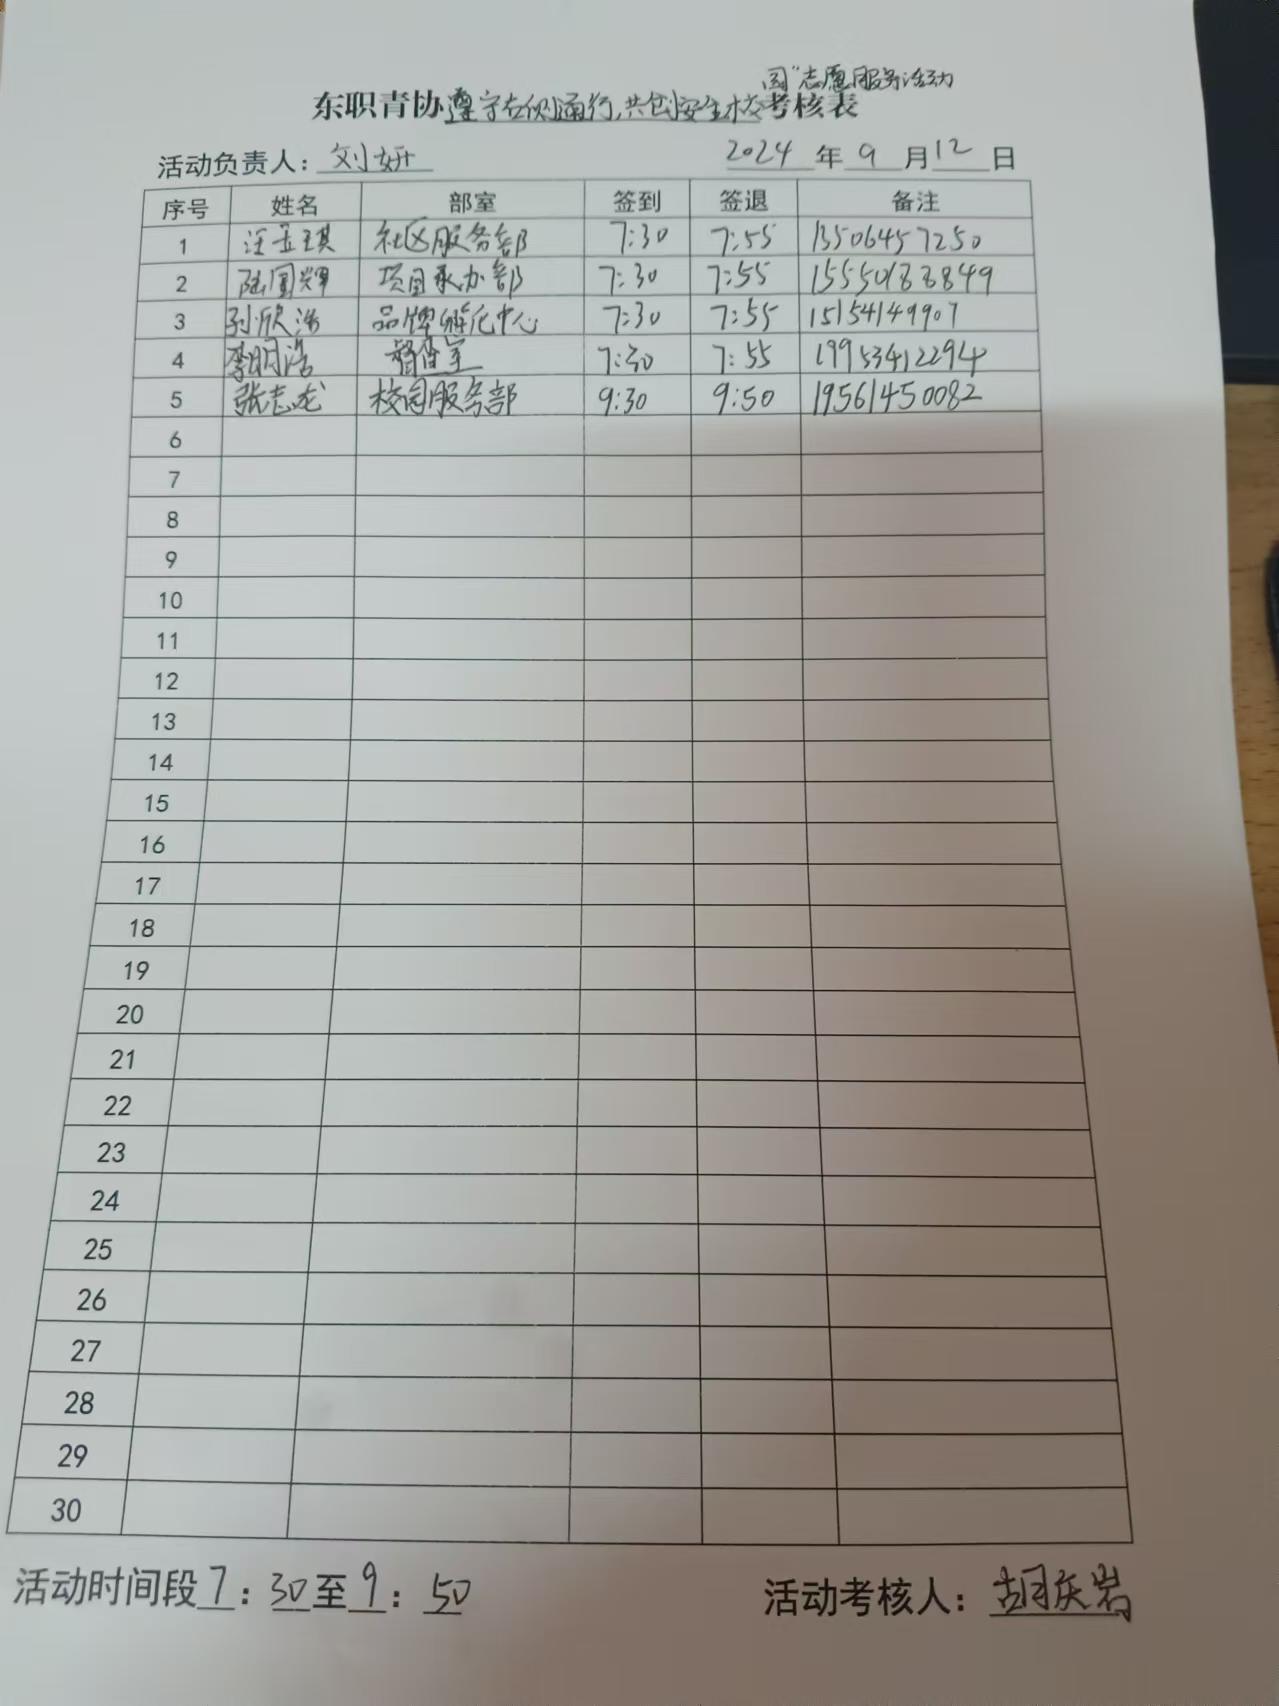 园"志愿服务活动
东职青协遵守右侧通行,共创安全校考核表
活动负责人：刘妍 2024 年 9 月 12 日
序号 姓名 部室 签到 签退 备注
1 汪孟琪 社区服务部 7:30 7:55 13506457250
2 陆国辉 项目承办部 7:30 7:55 15550183849
3 孙欣浩 品牌孵化中心 7:30 7:55 15154149907
4 李明浩 督查室 7:30 7:55 19953412294
5 张志龙 校园服务部 9:30 9:50 19561450082
6
7
8
9
10
11
12
13
14
15
16
17
18
19
20
21
22
23
24
25
26
27
28
29
30
活动时间段 7：30至 9：50 活动考核人：胡庆岩